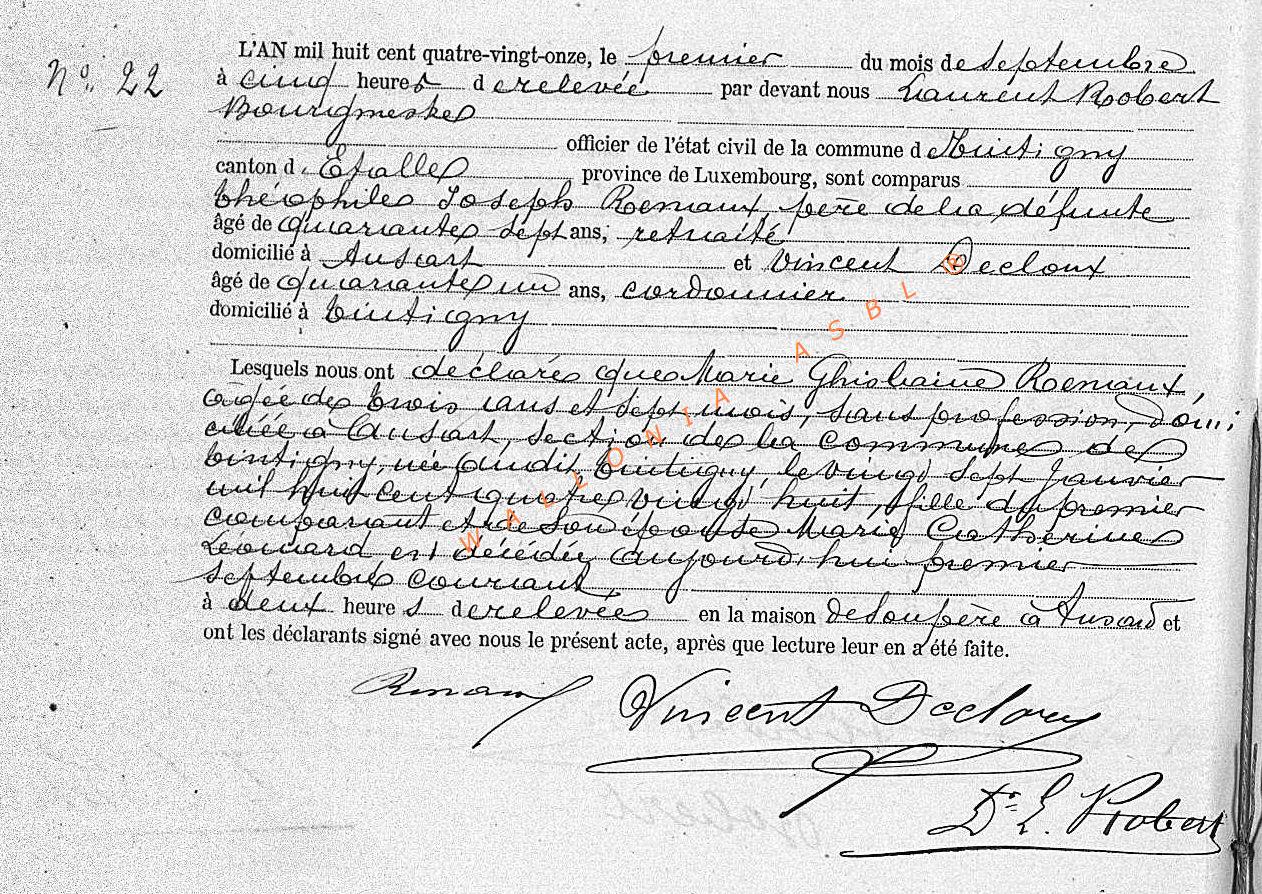 N° 22
L'AN mil huit cent quatre-vingt-onze, le premier du mois de septembre
à cinq heures de relevée par devant nous Laurent Robert
Bourgmestre
officier de l'état civil de la commune de Tintigny
canton d'Etalle province de Luxembourg, sont comparus
théophile Joseph Roemaux, père de la défunte
âgé de quarante sept ans, retraité
domicilié à Ansart et Vincent Decloux
âgé de quarante un ans, cordonnier
domicilié à tintigny
Lesquels nous ont déclaré que Marie Ghislaine Roemaux,
agée de trois ans et sept mois, sans profession, domi
ciliée à Ansart, section de la commune de
tintigny, née audit tintigny, le vingt sept Janvier
mil huit cent quatre vingt huit, fille du premier
comparant et de son épouse Marie Catherine
Léonard est décédée aujourd'hui premier
septembre courant
à deux heures de relevée en la maison de son père à Ansart et
ont les déclarants signé avec nous le présent acte, après que lecture leur en a été faite.
Vincent Decloux
Dr L. Robert
WALLONIA ASBL